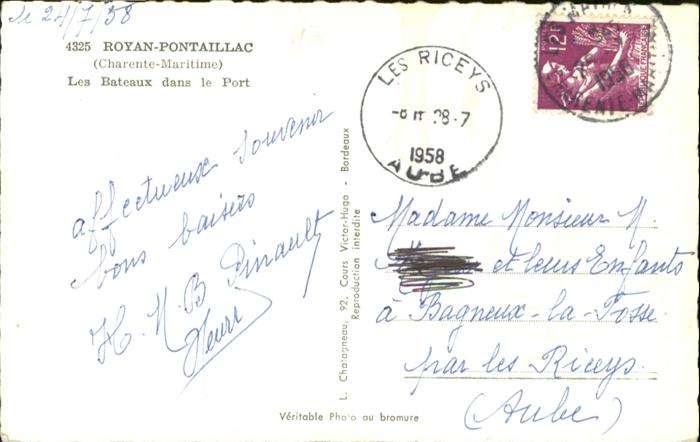 le 24/7/58
4325 ROYAN-PONTAILLAC
(Charente-Maritime)
Les Bateaux dans le Port
affectueux souvenir
bons baisers
H. M. B Pinault
Henri
L. Chatagneau, 92, Cours Victor-Hugo - Bordeaux
Reproduction interdite
Véritable Photo au bromure
LES RICEYS
28-7
1958
AUBE
12F
REPUBLIQUE FRANÇAISE
1958
Madame Monsieur M.
et leurs Enfants
à Bagneux-la-Fosse
par les Riceys
(Aube)